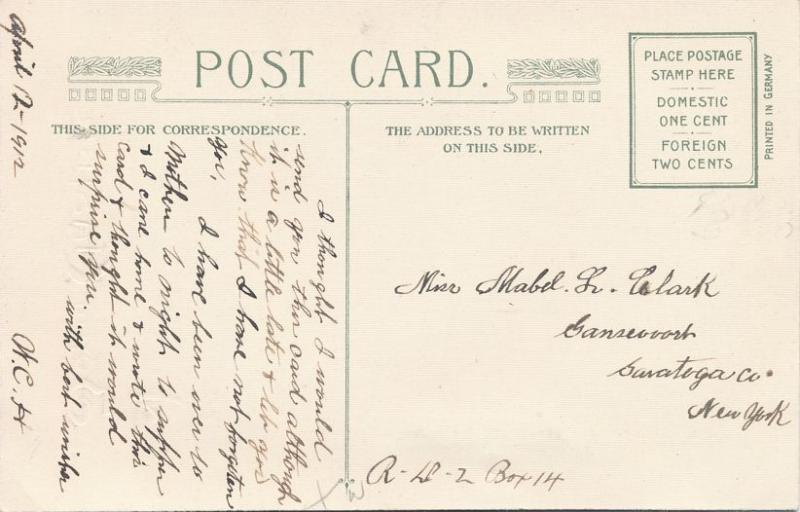 POST CARD.
THIS SIDE FOR CORRESPONDENCE.
THE ADDRESS TO BE WRITTEN
ON THIS SIDE.
PLACE POSTAGE
STAMP HERE
DOMESTIC
ONE CENT
FOREIGN
TWO CENTS
PRINTED IN GERMANY
April 12-1912
I thought I would
send you this card although
it is a little late & let you
know that I have not forgoten
you.
I have been over to
Mother to night to supper
& I came home & wrote this
card & thought it would
surprise you.
with best wishes
W.C.
Miss Mabel. L. Clark
Gansevoort
Saratoga Co.
New York
R-D-2 Box 14